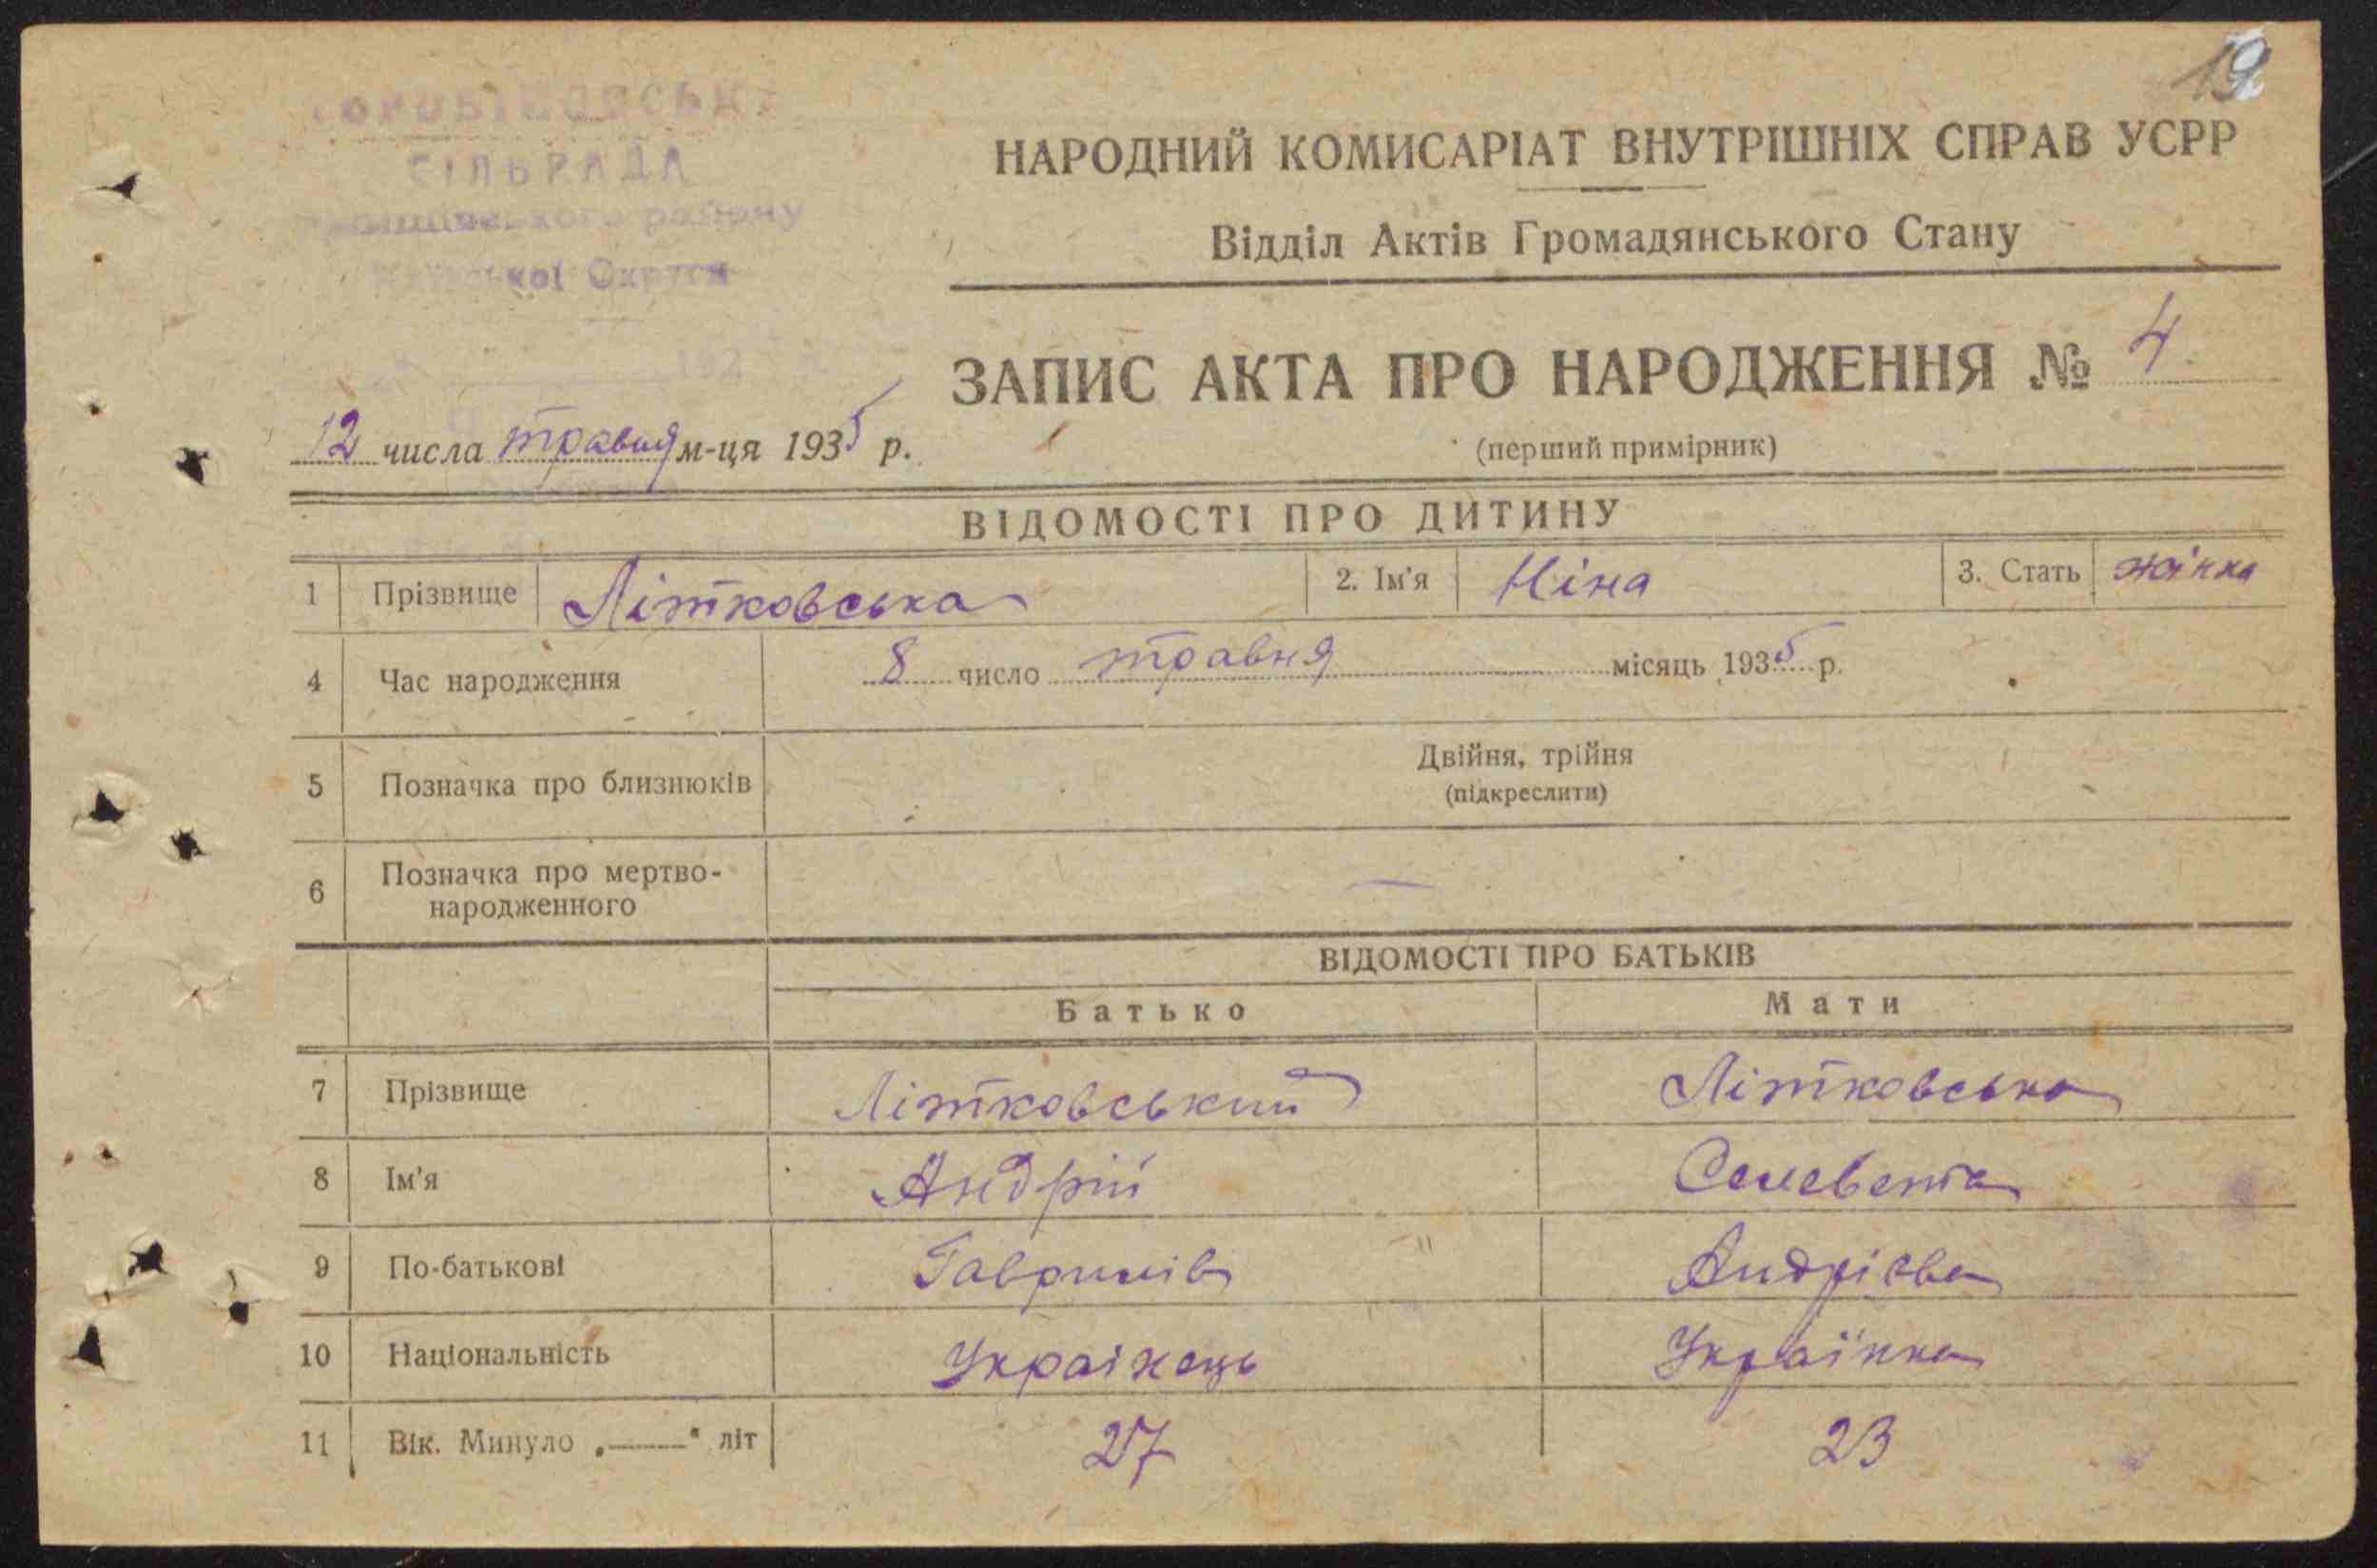 19
СІЛЬРАДА
району
Округи
НАРОДНИЙ КОМИСАРІАТ ВНУТРІШНІХ СПРАВ УСРР
Відділ Актів Громадянського Стану
192
ЗАПИС АКТА ПРО НАРОДЖЕННЯ № 4
12 числа травня м-ця 1935 р.
(перший примірник)
ВІДОМОСТІ ПРО ДИТИНУ
1 Прізвище Літковська 2. Ім'я Ніна 3. Стать жінка
4 Час народження 8 число травня місяць 1935 р.
5 Позначка про близнюків Двійня, трійня
(підкреслити)
6 Позначка про мертво-
народженного —
ВІДОМОСТІ ПРО БАТЬКІВ
Батько Мати
7 Прізвище Літковський Літковська
8 Ім'я Андрій
9 По-батькові Гаврилів Андрієва
10 Національність Українець Українка
11 Вік. Минуло „——" літ 27 23